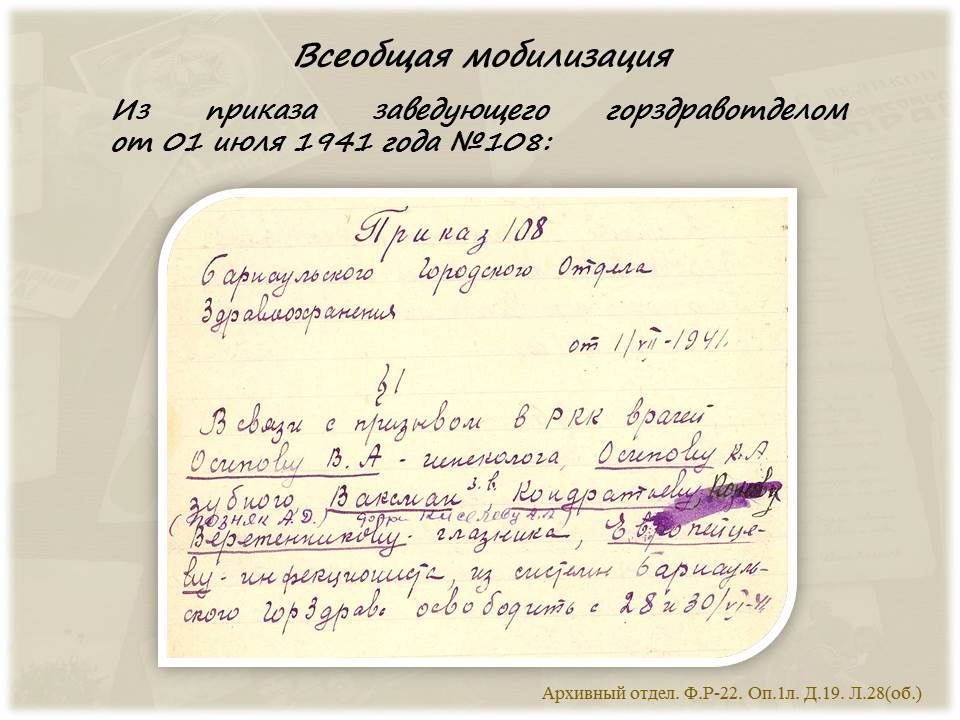 Всеобщая мобилизация
Из приказа заведующего горздравотделом
от 01 июля 1941 года №108:
Приказ 108
Барнаульского Городского Отдела
Здравоохранения
от 1/VII-1941.
§1
В связи с призывом в РКК врачей
Осипову В.А - гинеколога, Осипову К.А
зубного Ваксман З.В. Кондратьеву,
(Позняк А.Д.) Киселеву
Веретенникову - глазника, Европейце-
ву - инфекциониста, из систем Барнауль-
ского ГорЗдрава освободить с 28 и 30/VI-41
Архивный отдел. Ф.Р-22. Оп.1л. Д.19. Л.28(об.)